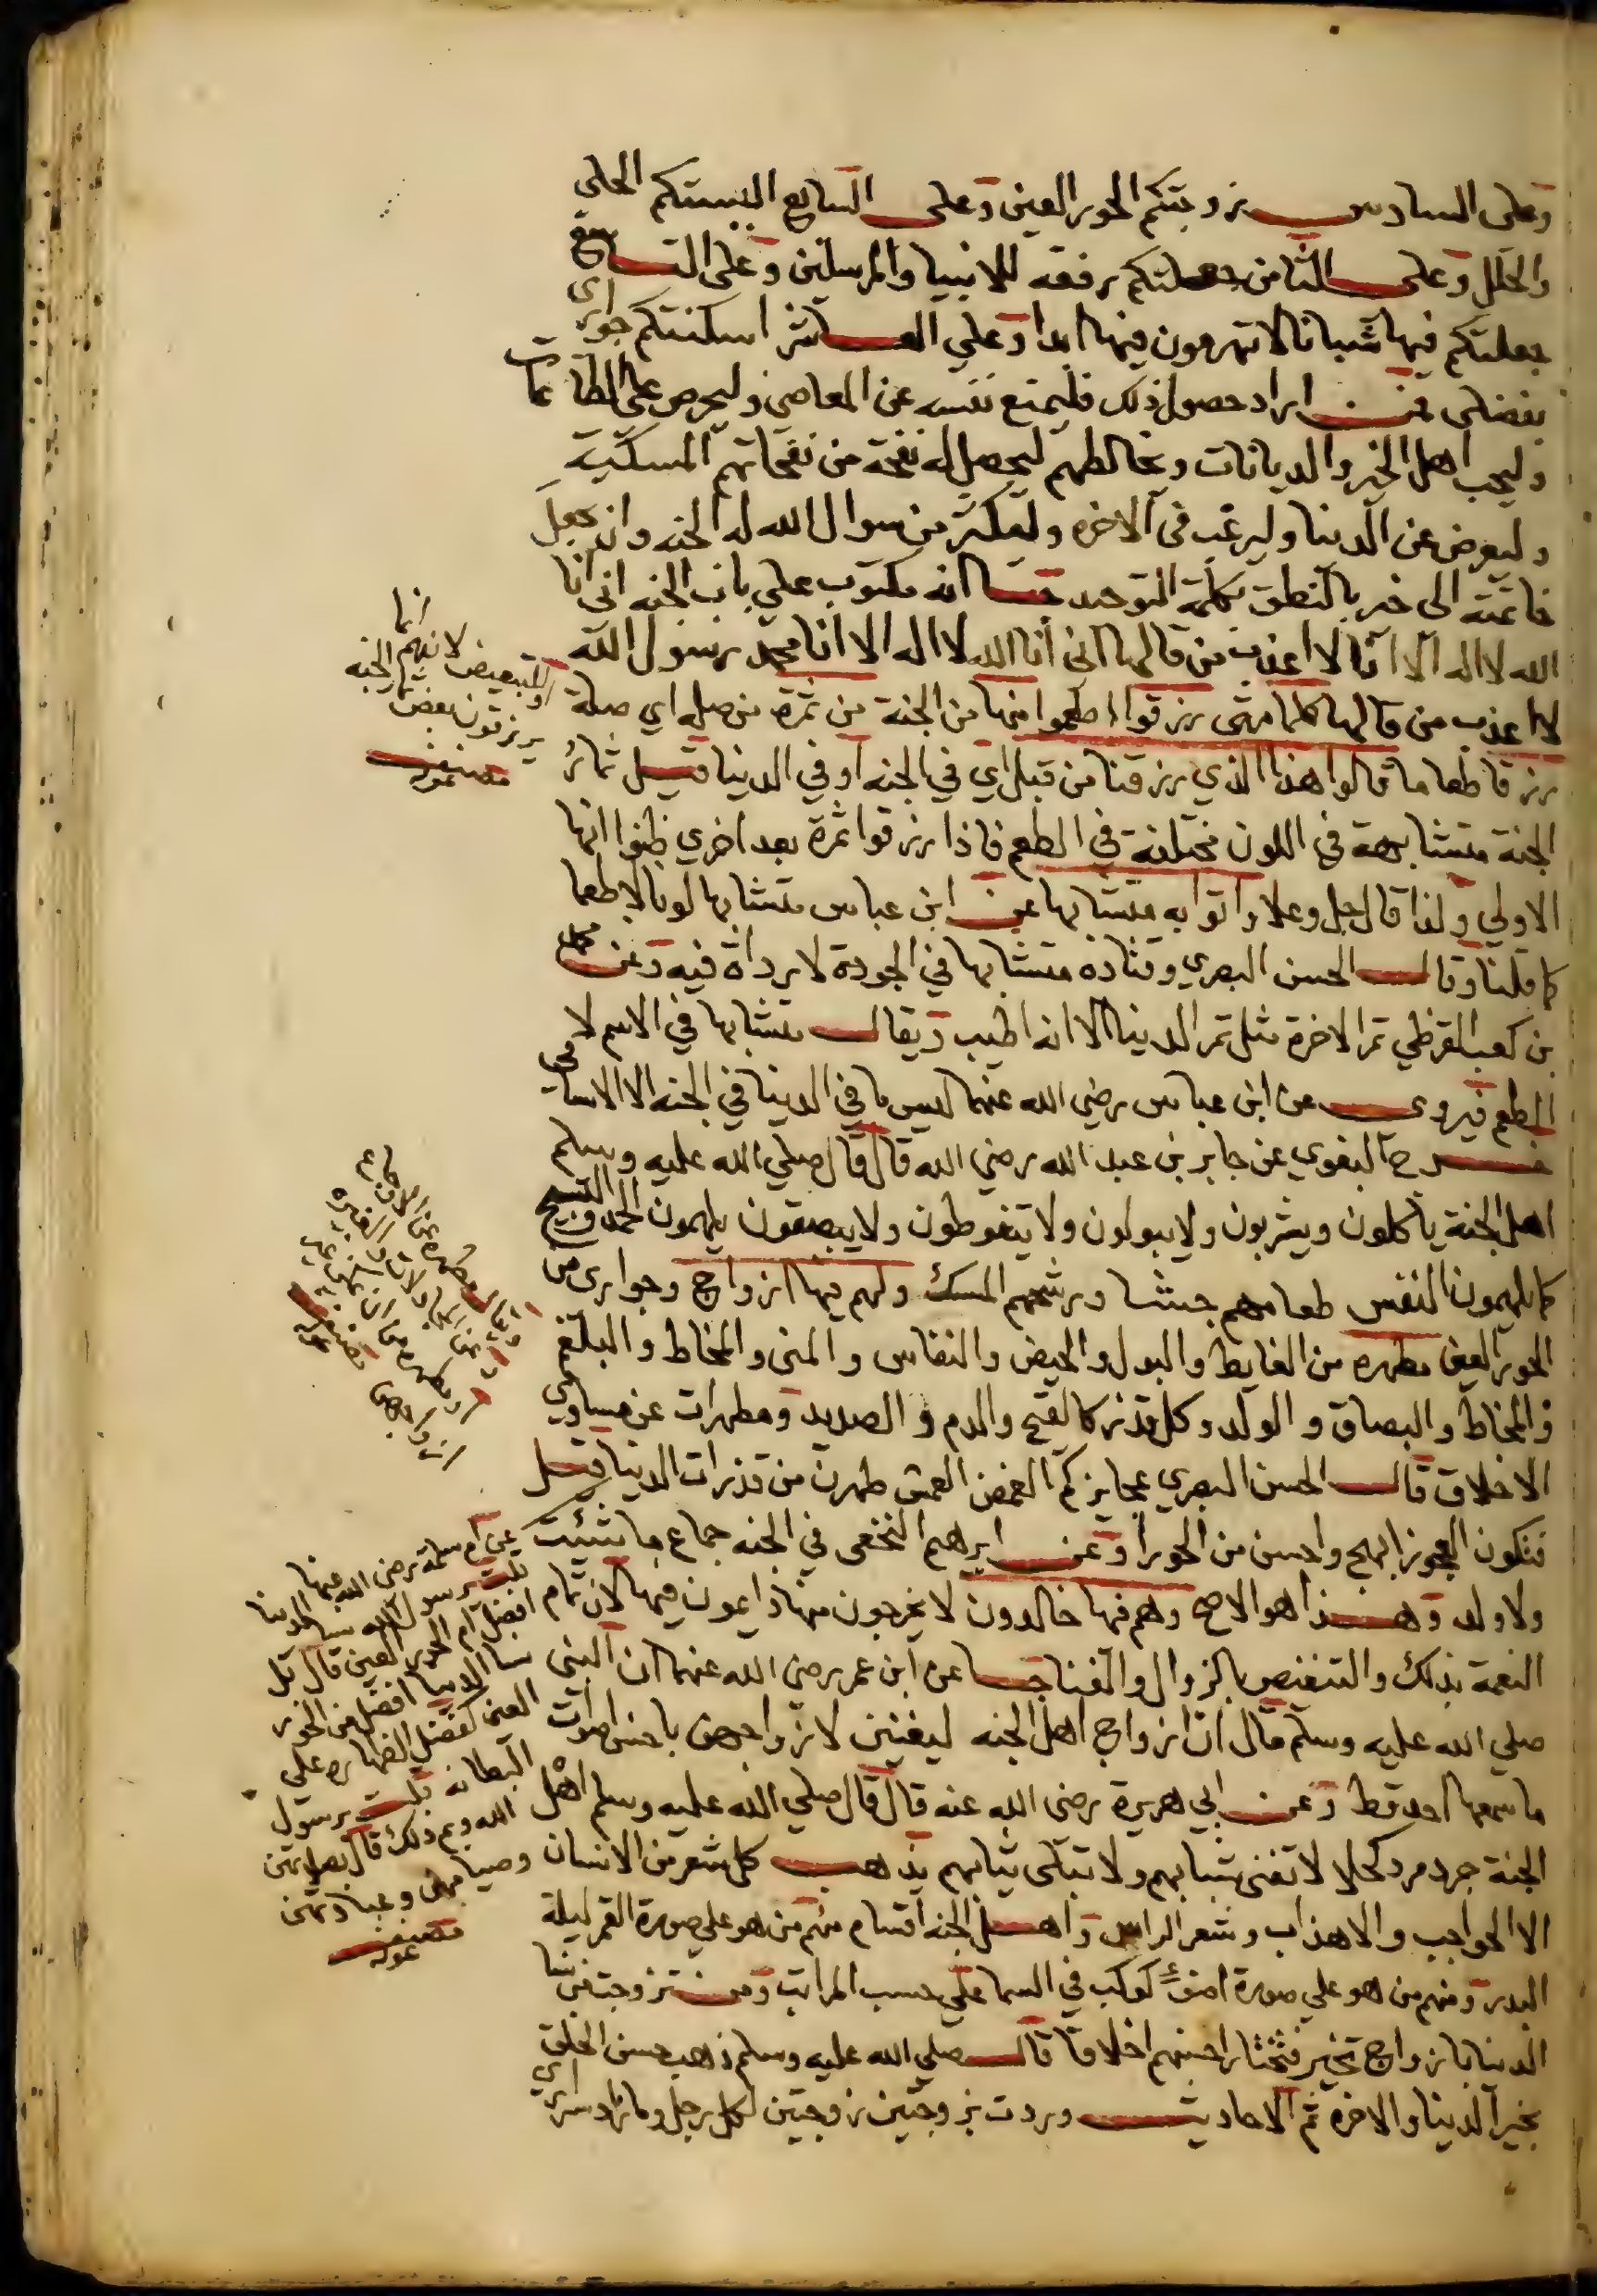 وعلى السادس زوجتكم الحور العين وعلى السابع البستكم الحلي
والحلل وعلى الثامن جعلتكم رفقه للانبيا والمرسلين وعلى التاسع
جعلتكم فيها شبانا لا تهرمون فيها ابدا وعلي العاشر اسكنتكم جواري
بفضلي فمن اراد حصول ذلك فليمنع نفسه عن المعاصي وليحرص على الطاعات
وليحب اهل الخير والديانات ويخالطهم ليحصل له نفحة من نفحاتهم المسكية
وليعرض عن الدنيا وليرغب في الاخره وليكثر من سوال الله له الجنه وان يجعل
خاتمته الى خير بالنطق بكلمة التوحيد انه مكتوب علي باب الجنه اني انا
الله لا اله الا انا لا اعذب من قالها اني انا الله لا اله الا انا محمد رسول الله
لا اعذب من قالها كلما متى رزقوا اطعموا منها من الجنة من ثمرة من صله اي صلة
رزقا طعاما قالوا هذا الذي رزقنا من قبل اي في الجنه او في الدنيا قيل ثمار
الجنة متشابهة في اللون مختلفة في الطعم فاذا رزقوا ثمرة بعد اخري ظنوا انها
الاولي ولذا قال جل وعلا واتوا به متشابها عن ابن عباس متشابها لونا لا طعما
كما قلنا وقال الحسن البصري وقتادة متشابها في الجودة لا رداة فيه وعن محمد
بن كعب القرظي ثمر الاخرة مثل ثمر الدنيا الا انه اطيب ويقال متشابها في الاسم لا في
الطعم فيروى عن ابن عباس رضي الله عنهما ليس ما في الدنيا في الجنه الا الاسامي
خرج البغوي عن جابر بن عبد الله رضي الله قال قال صلي الله عليه وسلم
اهل الجنة ياكلون ويشربون ولا يبولون ولا يتغوطون ولا يبصقون يلهمون الحمد والتسبيح
كما يلهمون النفس طعامهم جشا ورشحهم المسك ولهم فيها ازواج وجواري من
الحور العين مطهره من الغايط والبول والحيض والنفاس والمنى والمخاط والبلغم
والمخاط والبصاق والولد وكل قذر كالقيح والدم والصديد ومطهرات عن مساوي
الاخلاق قال الحسن البصري عجايزكم الغمص العمش طهرن من قذرات الدنيا قيل
فتكون العجوز ابهج واحسن من الحورا وعن ابرهيم النخعى في الجنه جماع ما شيئت
ولا ولد وهذا هو الاصح وهم فيها خالدون لا يخرجون منها دايمون فيها لان تمام
النعمة بذلك والتنغيص بالزوال والفنا عن ابن عمر رضى الله عنهما ان النبي
صلي الله عليه وسلم قال ان ازواج اهل الجنه ليغنين لازواجهن باحسن اصوات
ما سمعها احد قط وعن ابي هريرة رضى الله عنه قال قال صلي الله عليه وسلم اهل
الجنة جرد مرد كحلا لا تفنى شبابهم ولا تبلى ثيابهم يذهب كل شعر من الانسان
الا الحواجب والاهذاب وشعر الراس واهل الجنه اقسام منهم من هو علي صورة القمر ليلة
البدر ومنهم من هو علي صورة اضوء كوكب في السما علي حسب المراتب ومن تزوجت من نسا
الدنيا بازواج تخير فتختار احسنهم اخلاقا قال صلي الله عليه وسلم ذهب حسن الخلق
بخير الدنيا والاخرة ثم الاحاديث وردت بزوجتين زوجتين لكل رجل وما زاد سراري
او للتبعيض لانهم انما
يرزقون بعض الجنه
عن ام سلمة رضى الله عنها
قلت يرسول الله نسا الدنيا
افضل ام الحور العين قال بل
نسا الدنيا افضل من الحور
العين كفضل الظهاره على
البطانه قلت يرسول
الله وبم ذلك قال بصلاتهن
وصيامهن وعبادتهن